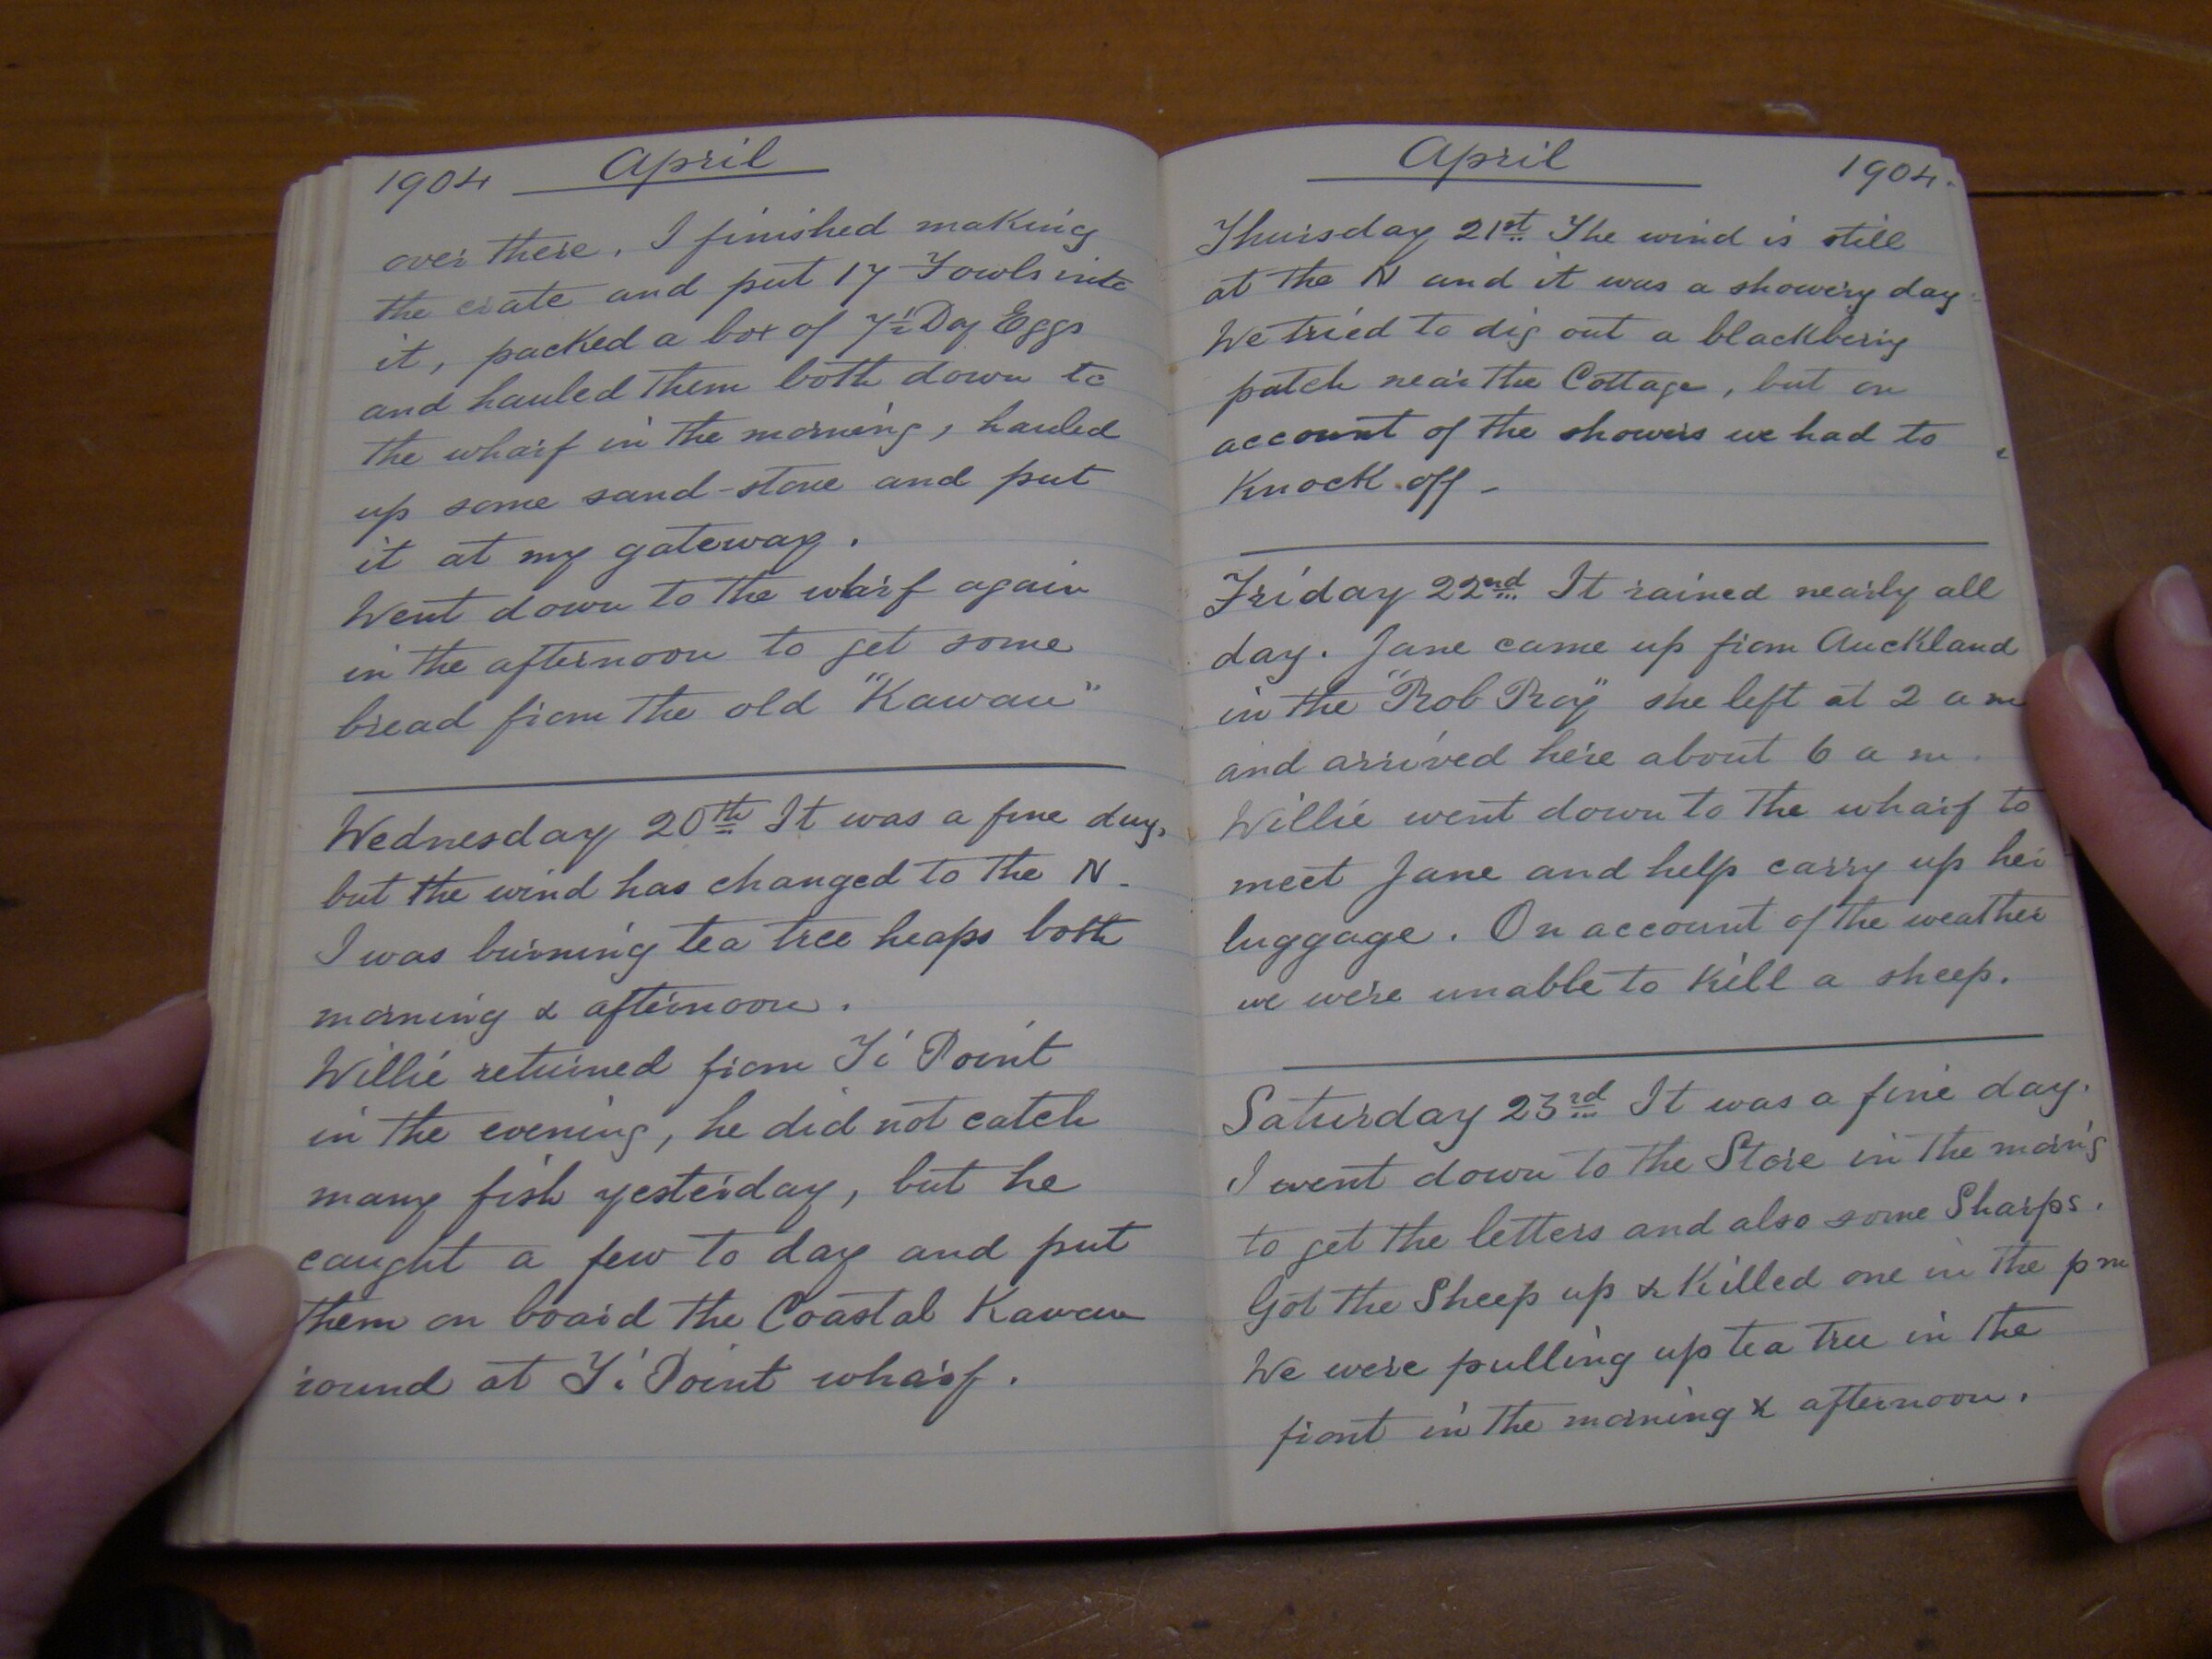 1904 April
over there. I finished making
the crate and put 17 Fowls into
it, packed a box of 7½ Doz Eggs
and hauled them both down to
the wharf in the morning, hauled
up some sand-stone and put
it at my gateway.
Went down to the wharf again
in the afternoon to get some
bread from the old "Kawau"
Wednesday 20th It was a fine day,
but the wind has changed to the N.
I was burning tea tree heaps both
morning & afternoon.
Willie returned from Ti Point
in the evening, he did not catch
many fish yesterday, but he
caught a few to day and put
them on board the Coastal Kawau
round at Ti Point wharf.
April 1904.
Thursday 21st The wind is still
at the N and it was a showery day.
We tried to dig out a blackberry
patch near the Cottage, but on
account of the showers we had to
Knock off -
Friday 22nd It rained nearly all
day. Jane came up from Auckland
in the "Rob Roy" she left at 2 a m
and arrived here about 6 a m.
Willie went down to the wharf to
meet Jane and help carry up her
luggage. On account of the weather
we were unable to Kill a sheep.
Saturday 23rd It was a fine day.
I went down to the Store in the morn'g
to get the letters and also some Sharps.
Got the Sheep up & Killed one in the p m
We were pulling up tea tree in the
front in the morning & afternoon.